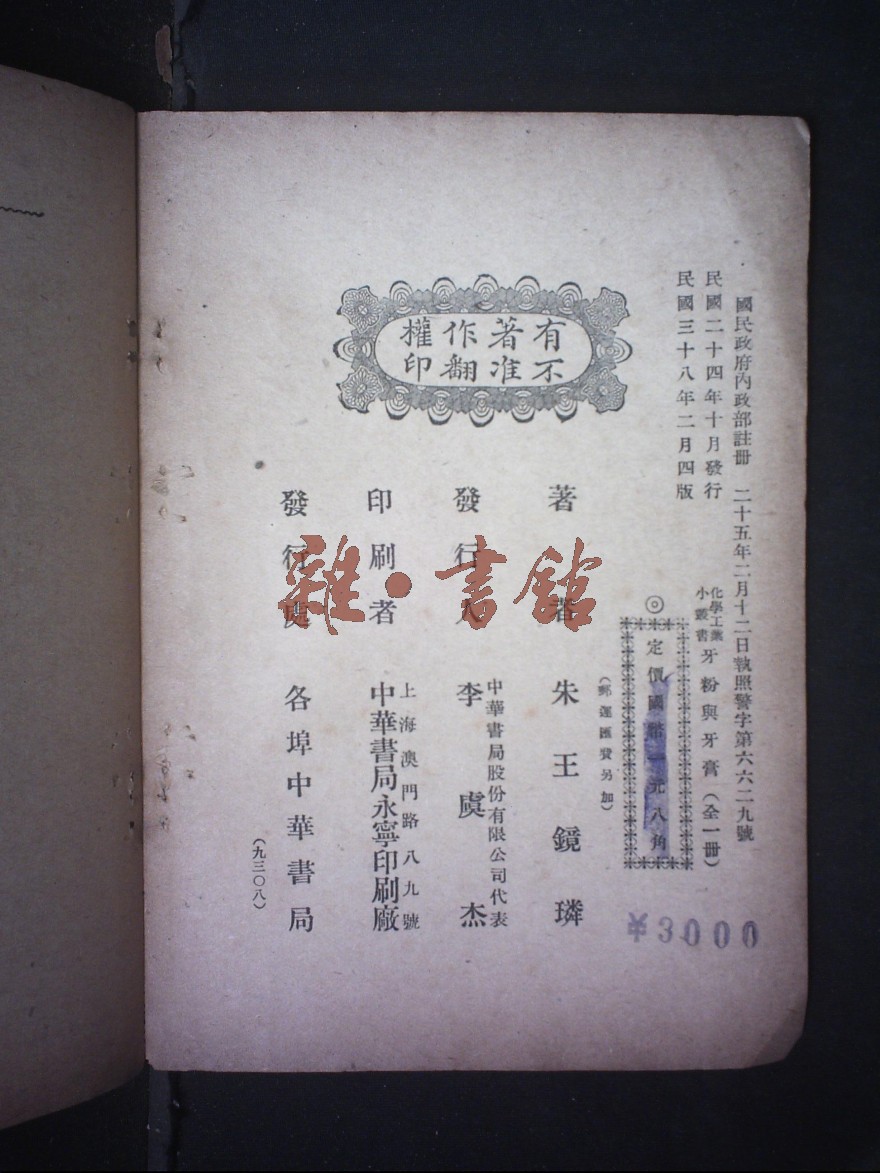 國民政府內政部註冊 二十五年二月十二日執照警字第六六二九號
民國二十四年十月發行
民國三十八年二月四版
化學工業
小叢書
牙粉與牙膏（全一冊）
◎
定價國幣一元八角
（郵運匯費另加）
¥3000
有著作權
不准翻印
著者 朱王鏡璘
發行人 李虞杰
中華書局股份有限公司代表
印刷者 中華書局永寧印刷廠
上海澳門路八九號
發行處 各埠中華書局
（九三〇八）
雜·書館